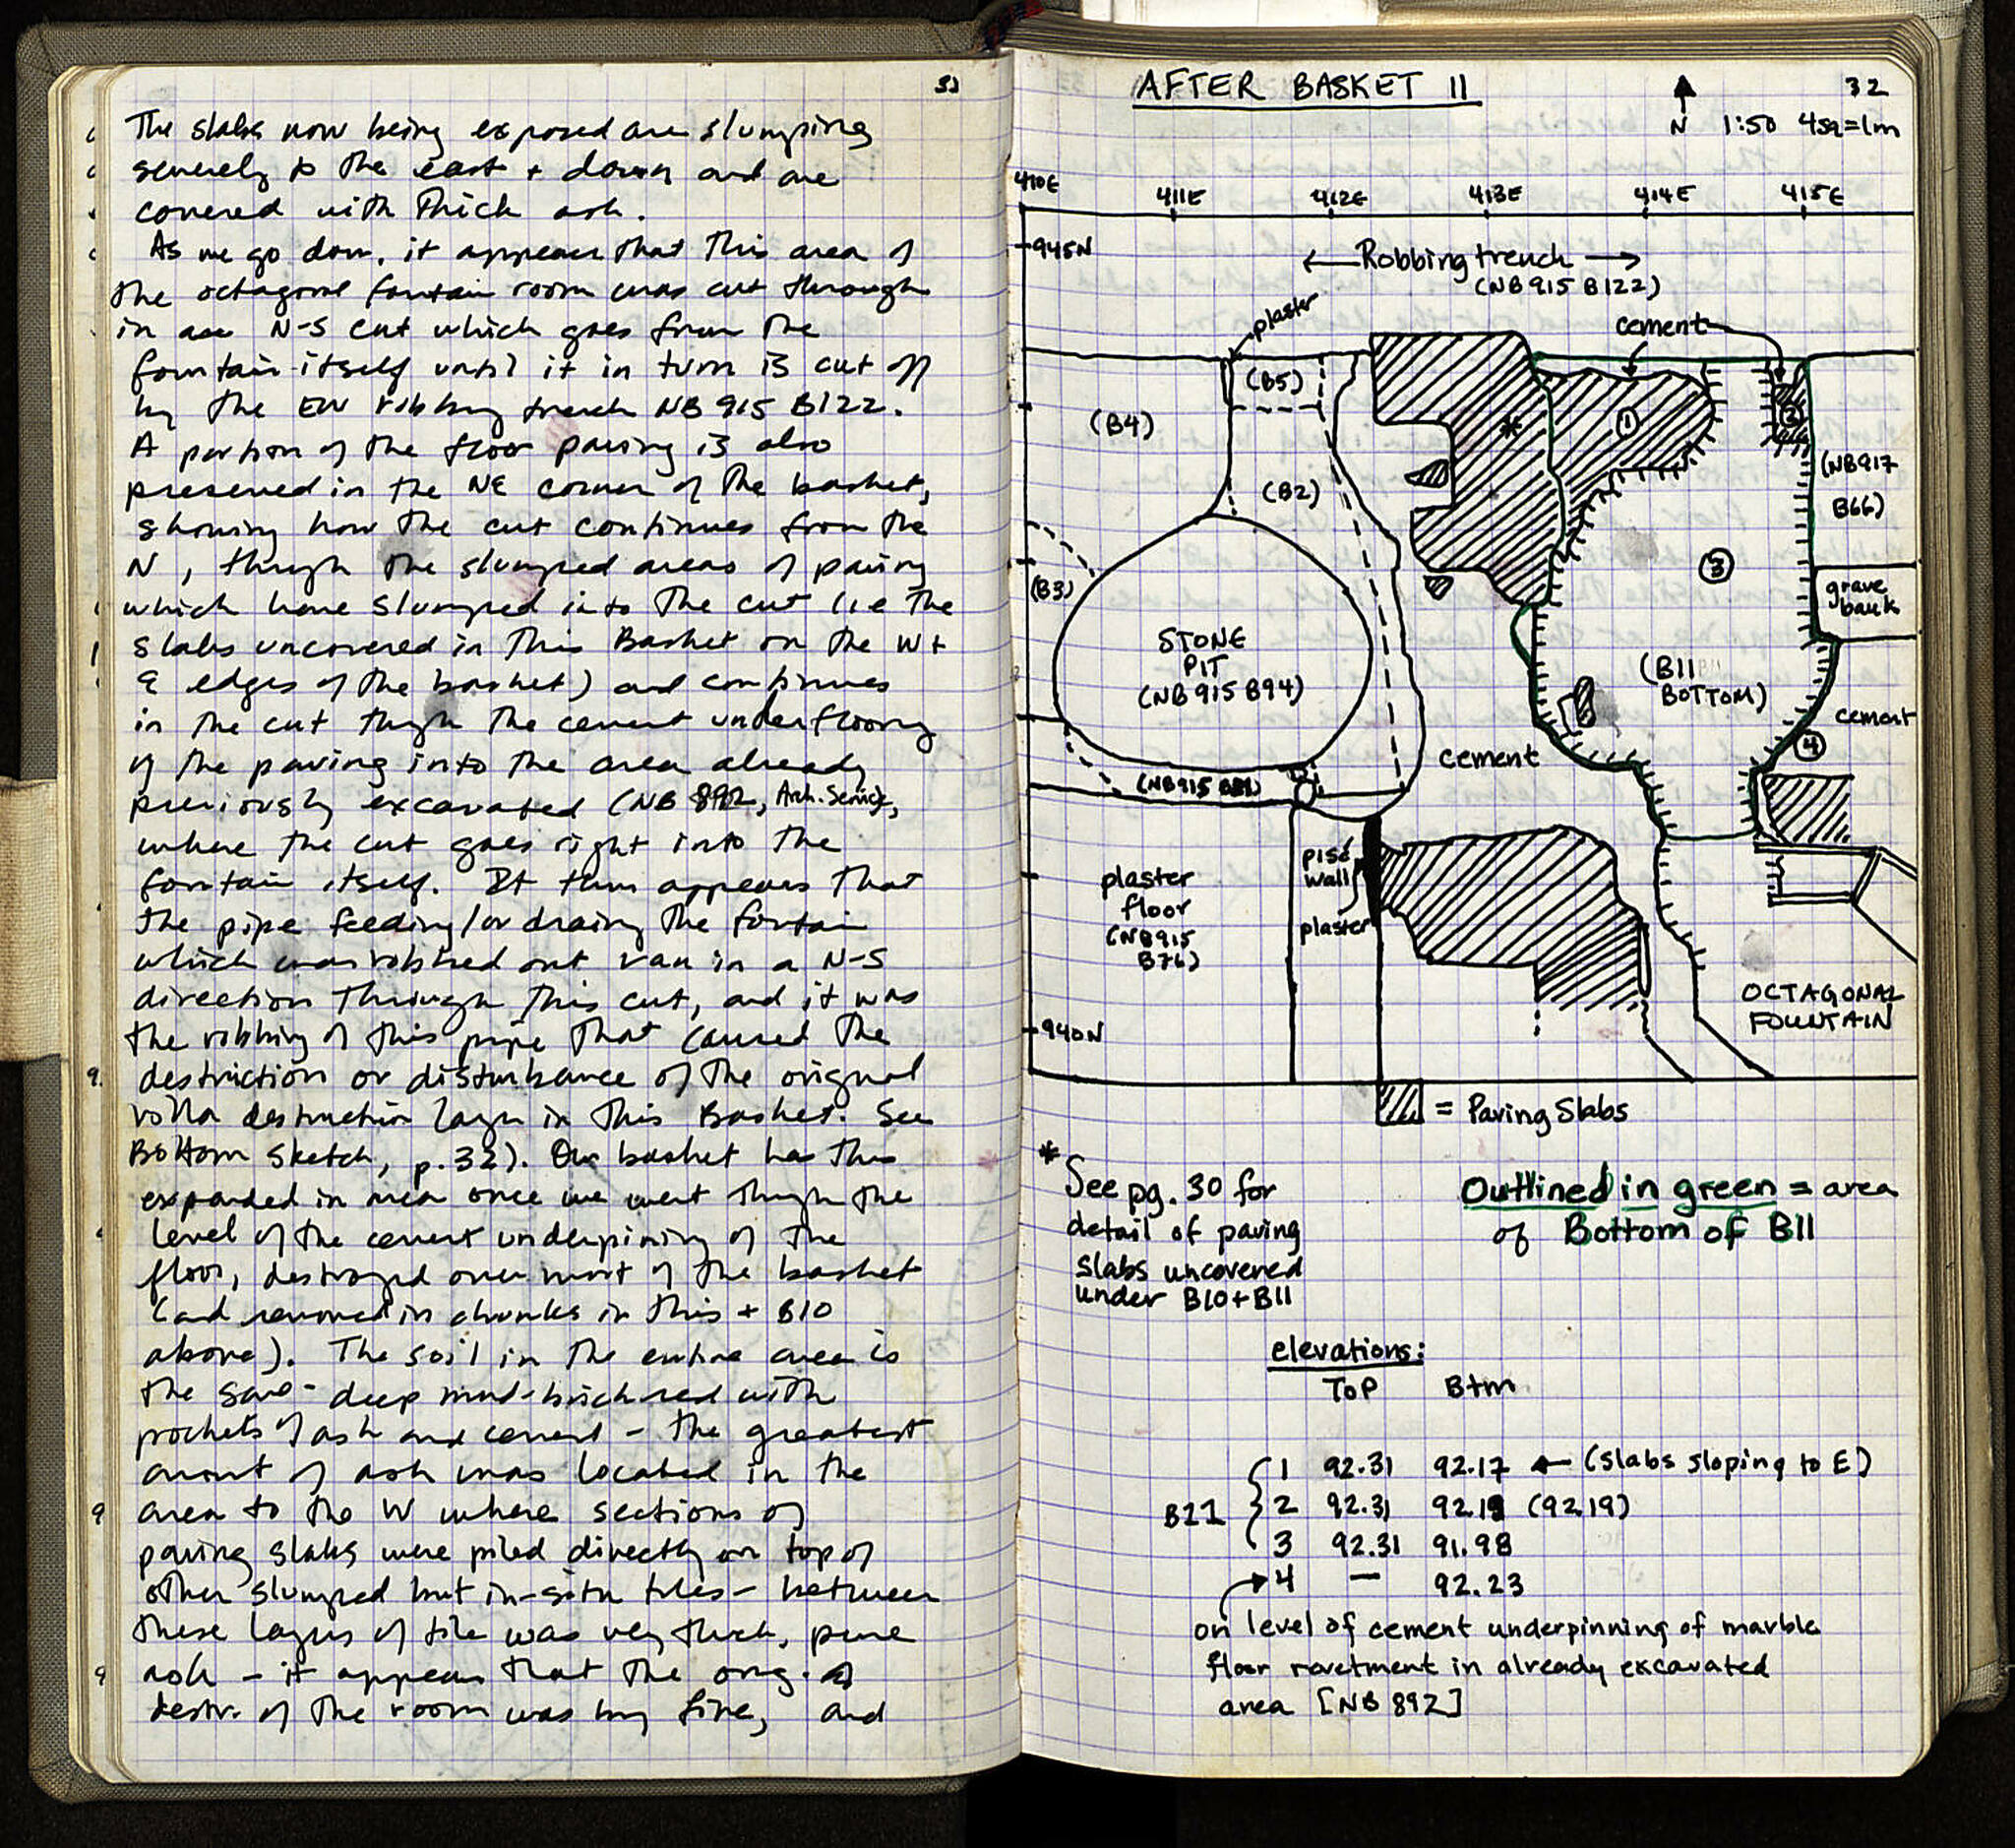 33
The slabs now being exposed are slumping
severely to the east + down and are
covered with thick ash.
As we go down, it appears that this area of
the octagonal fountain room was cut through
in a N-S cut which goes from the
fountain itself until it in turn is cut off
by the EW robbing trench NB 915 B122.
A portion of the floor paving is also
preserved in the NE corner of the basket,
showing how the cut continues from the
N, through the slumped areas of paving
which have slumped into the cut (ie the
slabs uncovered in this Basket on the W +
E edges of the basket) and continues
in the cut through the cement underflooring
of the paving into the area already
previously excavated (NB 892, Arch. Service,
where the cut goes right into the
fountain itself. It thus appears that
the pipe feeding/or draing the fontain
which was robbed out ran in a N-S
direction through this cut, and it was
the robbing of this pipe that caused the
destriction or disturbance of the original
destruction layer in this Basket. See
Bottom Sketch, p. 32). Our basket has thus
expanded in area once we went through the
level of the cement underpining of the
floor, destroyed over most of the basket
(and removed in chunks in this + B10
above). The soil in the entire area is
the same - deep mud-brick red with
pockets of ash and cement - the greatest
amount of ash was located in the
area to the W where sections of
paving slabs were piled directly on top of
other slumped but in-situ tiles - between
these layers of tile was very thick, pure
ash - it appears that the orig.
destr. of the room was by fire, and
AFTER BASKET 11
32
N 1:50 4sq=1m
410E 411E 412E 413E 414E 415E
945N
← Robbing trench →
(NB 915 B122)
plaster
cement
(B5)
(B4)
*
1
2
(NB917
B66)
(B2)
(B3)
3
grave
baulk
STONE
PIT
(NB 915 B94)
(B11
BOTTOM)
cement
4
cement
(NB915
plaster
floor
(NB915
B76)
pisé
wall
plaster
OCTAGONAL
FOUNTAIN
940N
= Paving Slabs
*
See pg. 30 for
detail of paving
slabs uncovered
under B10+B11
Outlined in green = area
of Bottom of B11
elevations:
TOP Btm
1 92.31 92.17 ← (slabs sloping to E)
B11 2 92.31 92.19 (92.19)
3 92.31 91.98
→4 — 92.23
on level of cement underpinning of marble
floor revetment in already excavated
area [NB 892]